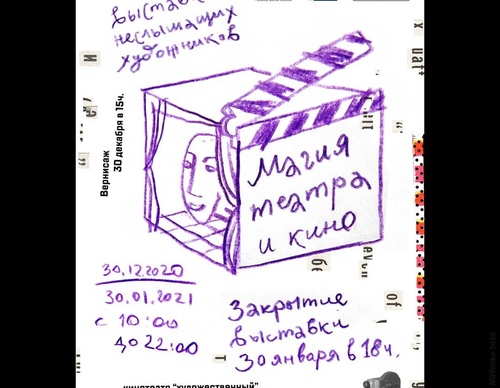 выставка
неслышащих
художников
Вернисаж
30 декабря в 15ч.
Магия
театра
и кино
30.12.2020
30.01.2021
с 10:00
до 22:00
Закрытие
выставки
30 января в 18ч.
кинотеатр "художественный"